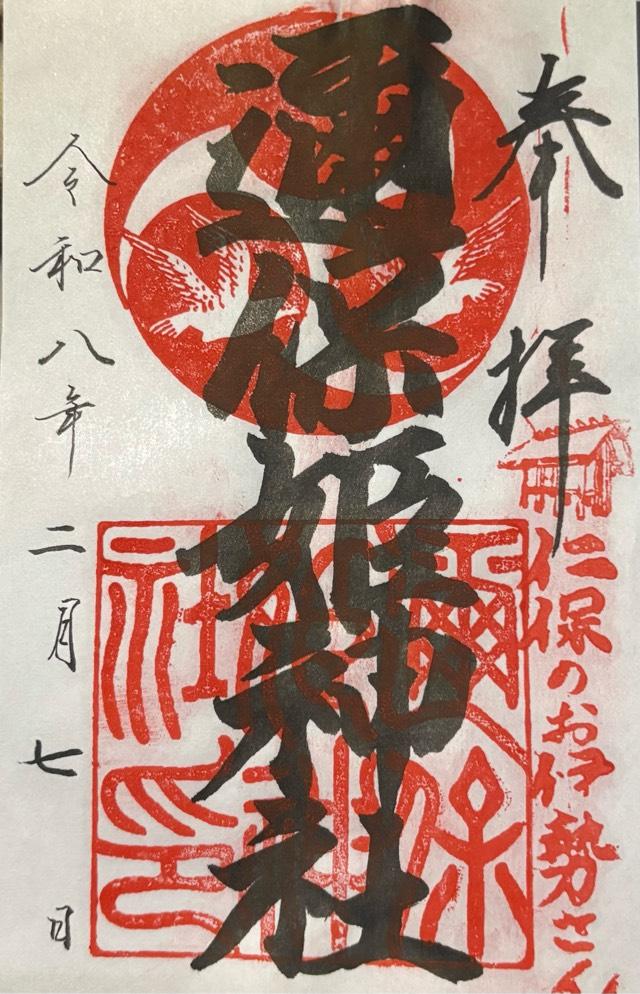 奉拝
仁保のお伊勢さん
邇保姫神社
令和八年二月七日